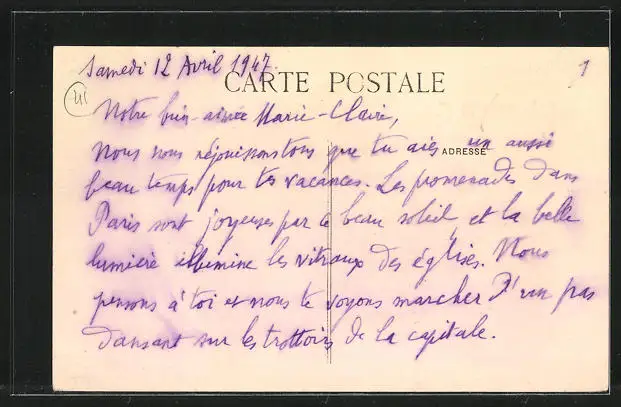 Samedi 12 Avril 1947.
CARTE POSTALE
Notre bien-aimée Marie-Claire,
Nous nous réjouissons tous que tu aies un aussi
ADRESSE
beau temps pour tes vacances. Les promenades dans
Paris sont joyeuses par ce beau soleil, et la belle
lumière illumine les vitraux des églises. Nous
pensons à toi et nous te voyons marcher d'un pas
dansant sur les trottoirs de la capitale.